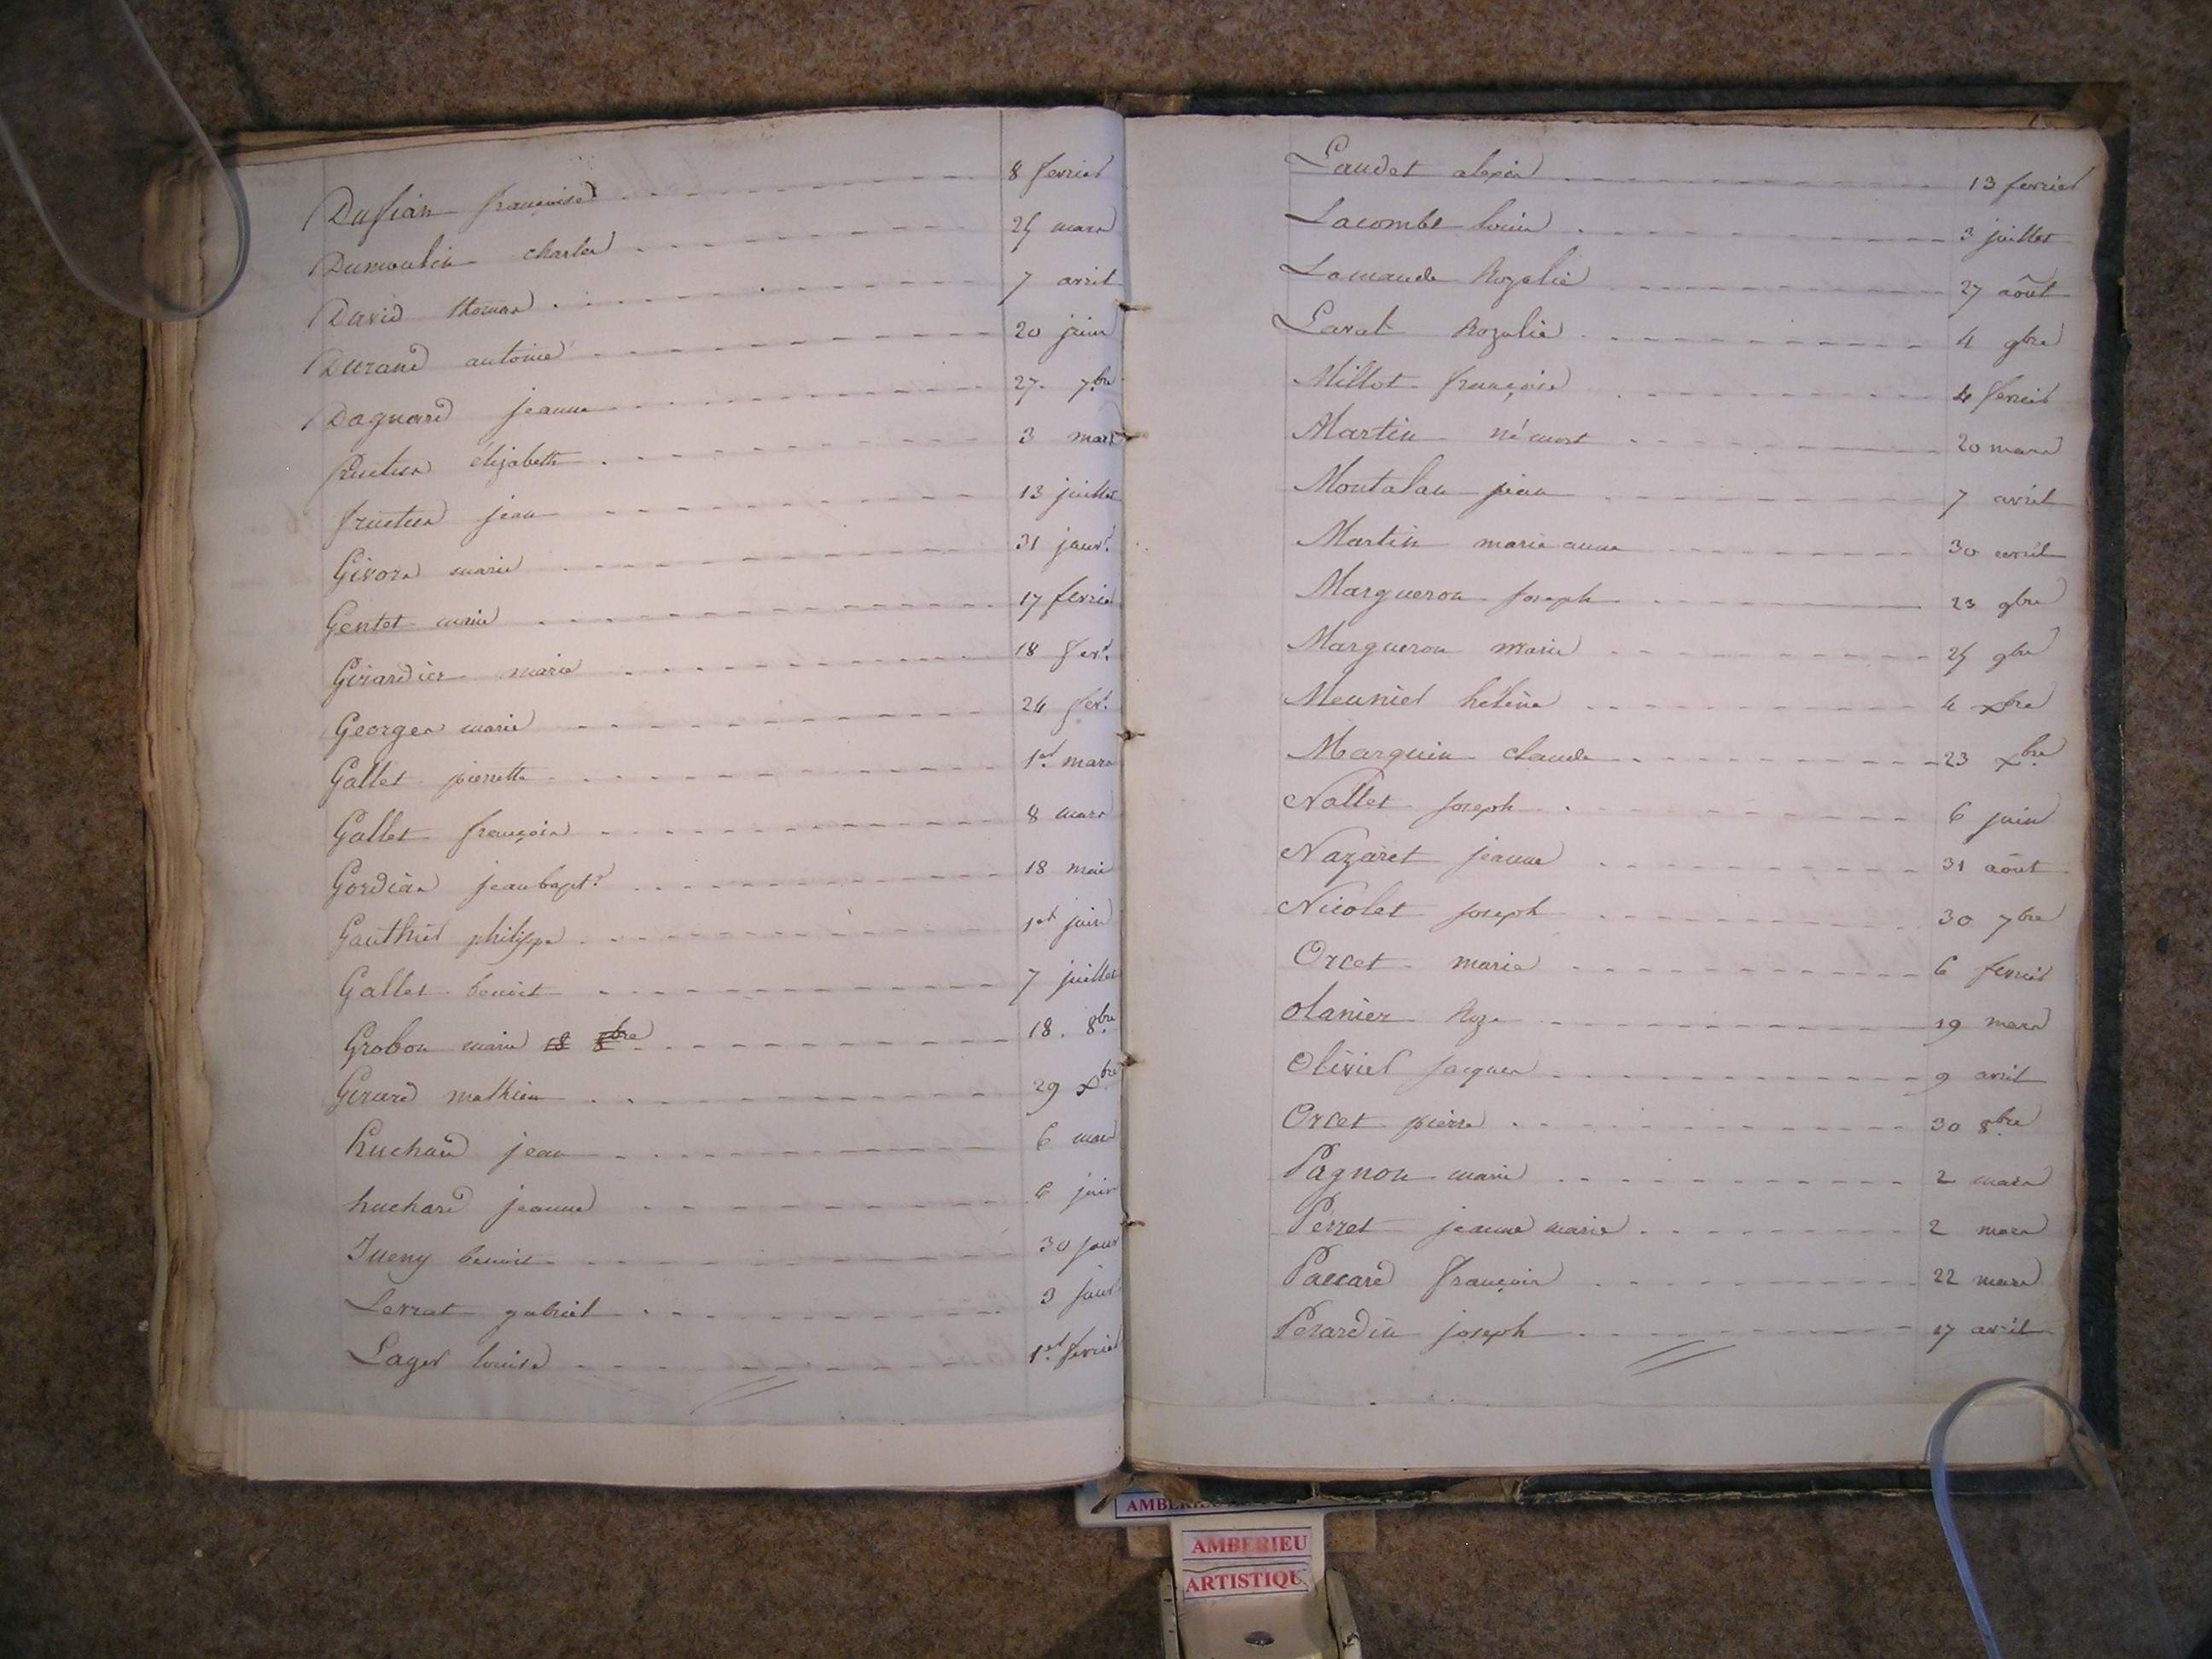 Dufian françoise 8 fevrier
Dumoulin charles 25 mars
David thomas 7 avril
Durand antoine 20 juin
Dagnard jeanne 27. 7.bre
fructus élizabeth 3 mars
fructus jean 13 juillet
Givors marie 31 janv.r
Gentet marie 17 fevrier
Girardier marie 18 fev.r
Georges marie 24 fev.r
Gallet pierrette 1.er mars
Gallet françois 8 mars
Gordian jean bapt.e 18 mai
Gauthier philippe 1er juin
Gallet benoit 7 juillet
Grobon marie 18 8bre 18. 8.bre
Girard mathieu 29 xbre
huchard jean 6 mars
huchard jeanne 6 juin
Jueny benoit 30 janv
Levrat gabriel 3 janv
Lager louise 1.er fevrier
Laudet alexis 13 fevrier
Lacombe louis 3 juillet
Lamande Rozalie 27 août
Larat Rozalie 4 9bre
Millot françoise 4 fevrier
Martin né mort 20 mars
Montalan jean 7 avril
Martin marie anne 30 avril
Margueron joseph 23 9bre
Margueron marie 25 9bre
Meunier hélène 4 xbre
Marquin claude 23 xbre
Nallet joseph 6 juin
Nazaret jeanne 31 août
Nicolet joseph 30 7bre
Orcet marie 6 fevrier
olanier Roze 19 mars
Olivier jacques 9 avril
Orcet pierre 30 8bre
Pagnon marie 2 mars
Perret jeanne marie 2 mars
Paccard françois 22 mars
Perardin joseph 17 avril
AMBERIEU
AMBERIEU
ARTISTIQU